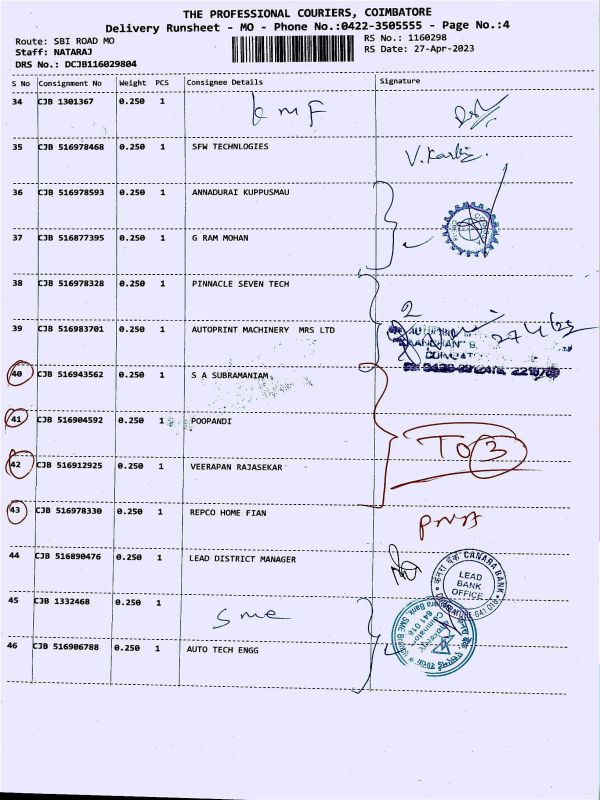 THE PROFESSIONAL COURIERS, COIMBATORE
Delivery Runsheet - MO - Phone No.:0422-3505555 - Page No.:4
Route: SBI ROAD MO
Staff: NATARAJ
DRS No.: DCJB116029804
RS No.: 1160298
RS Date: 27-Apr-2023
S No Consignment No Weight PCS Consignee Details Signature
34 CJB 1301367 0.250 1 KMF
35 CJB 516978468 0.250 1 SFW TECHNLOGIES V. Karthi
36 CJB 516978593 0.250 1 ANNADURAI KUPPUSMAU
37 CJB 516877395 0.250 1 G RAM MOHAN
38 CJB 516978328 0.250 1 PINNACLE SEVEN TECH
2
39 CJB 516983701 0.250 1 AUTOPRINT MACHINERY MRS LTD 27/4/23
40 CJB 516943562 0.250 1 S A SUBRAMANIAM
41 CJB 516904592 0.250 1 POOPANDI
TO 3
42 CJB 516912925 0.250 1 VEERAPAN RAJASEKAR
43 CJB 516978330 0.250 1 REPCO HOME FIAN
44 CJB 516890476 0.250 1 LEAD DISTRICT MANAGER
केनरा बैंक CANARA BANK
LEAD
BANK
OFFICE
COIMBATORE-641 018
45 CJB 1332468 0.250 1 Sme
641 018
46 CJB 516906788 0.250 1 AUTO TECH ENGG